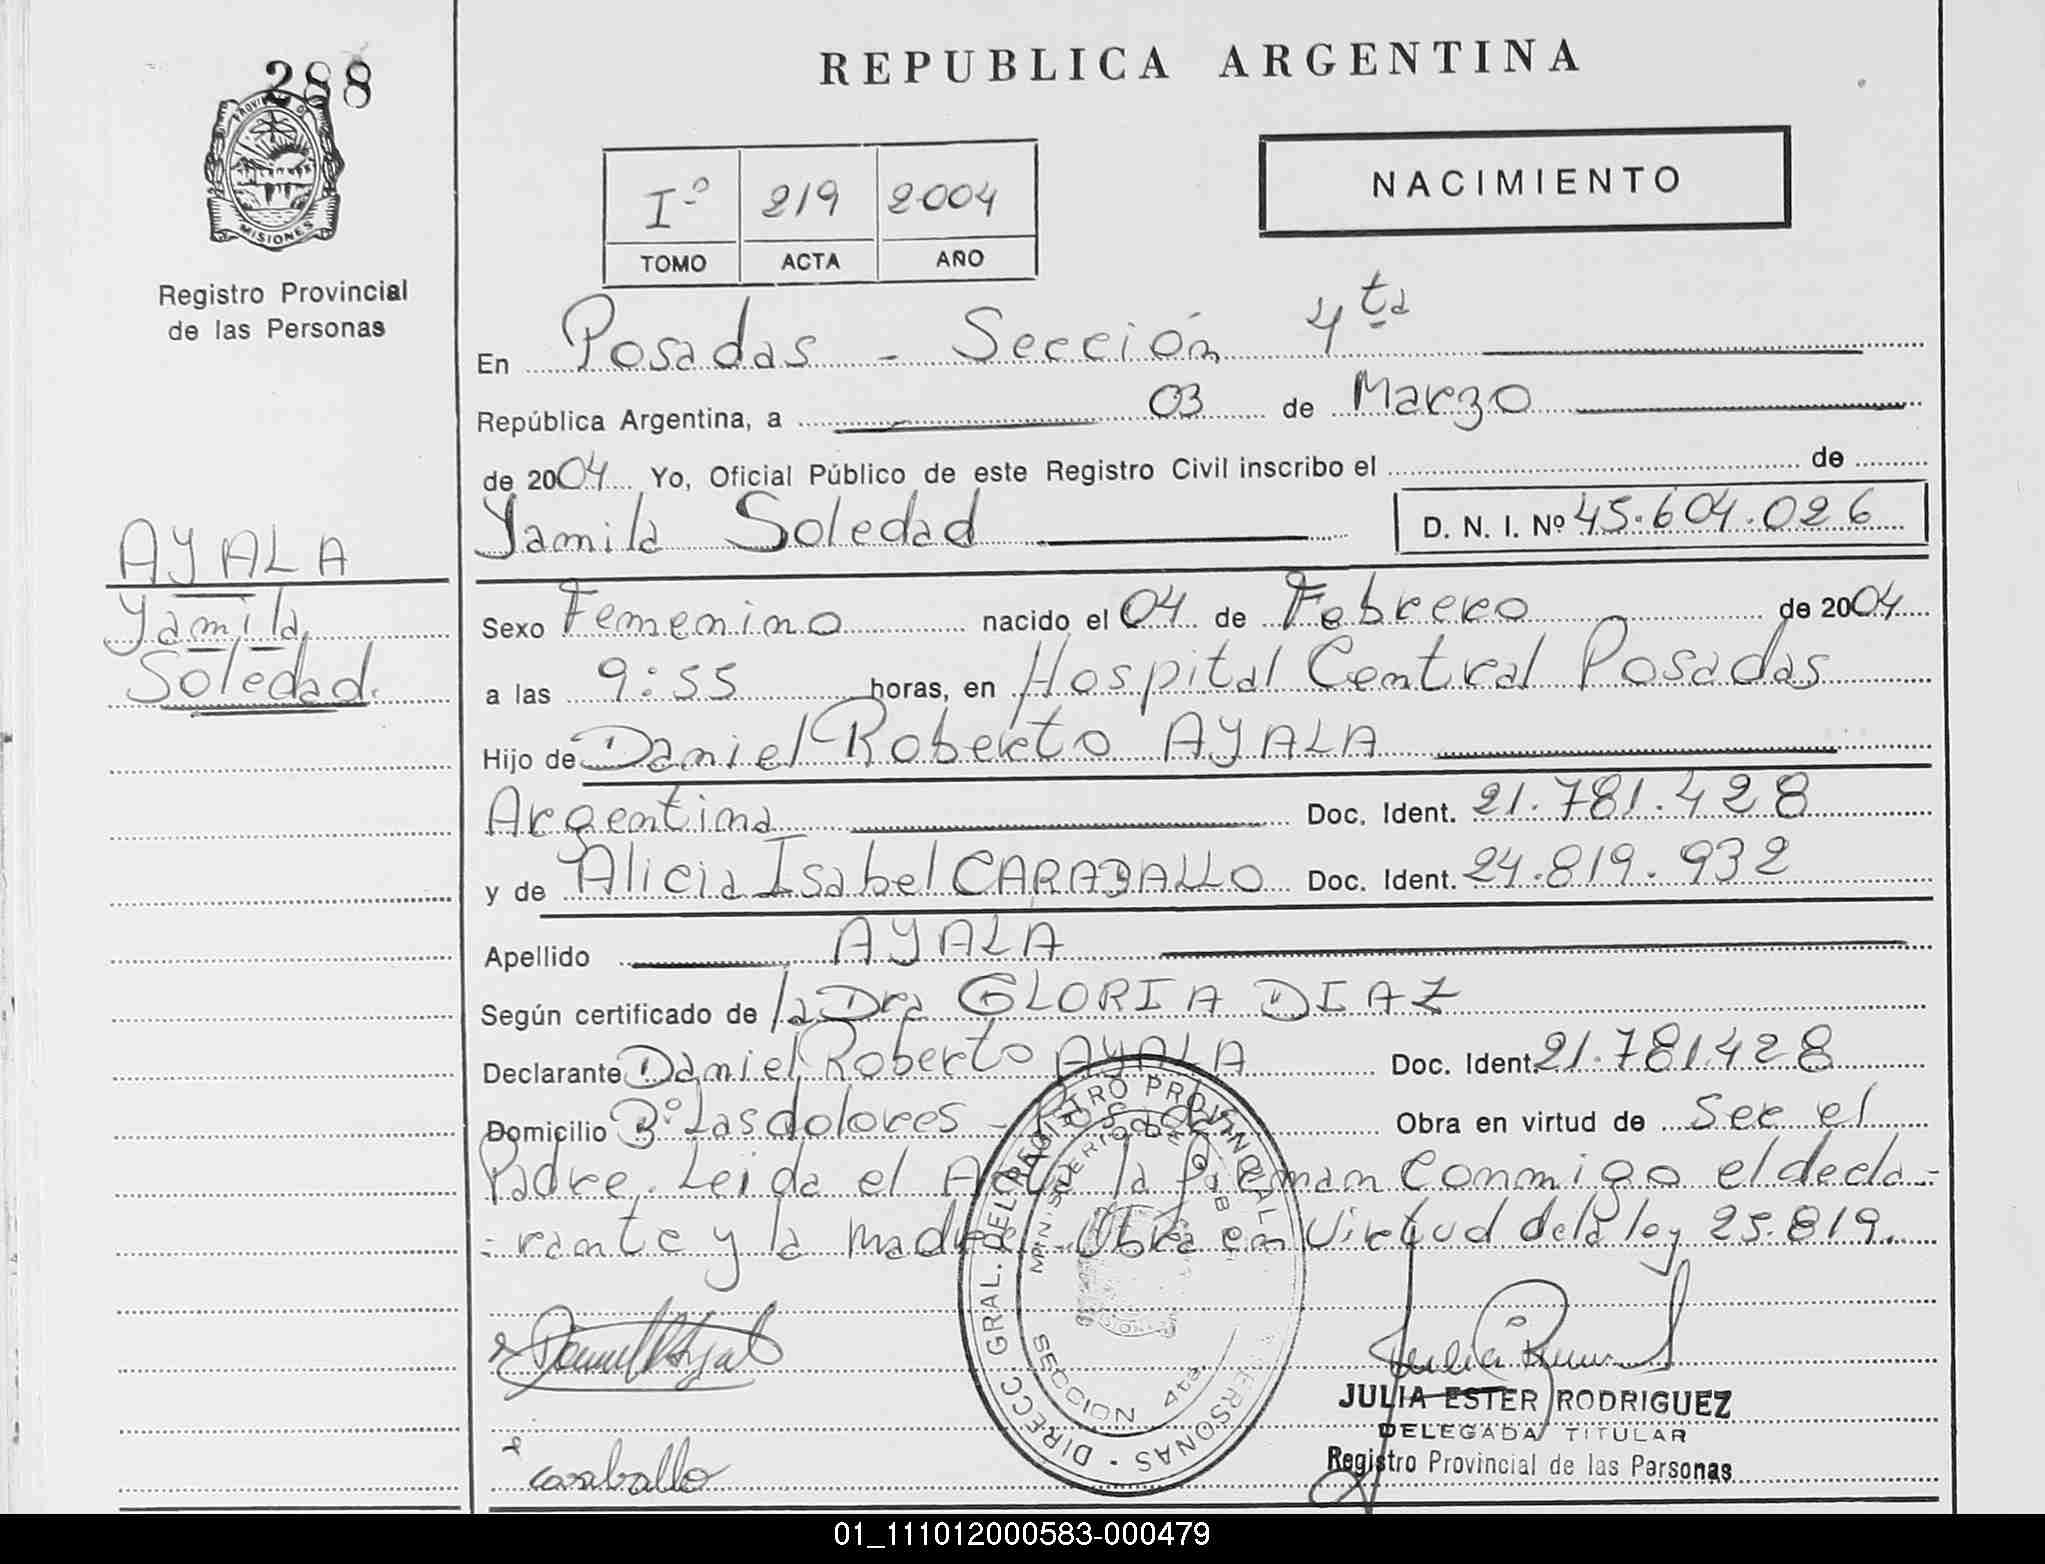 288
PROVINCIA DE
MISIONES
Registro Provincial
de las Personas
AYALA
Yamila
Soledad.
REPUBLICA ARGENTINA
Iº 219 2004
TOMO ACTA AÑO
NACIMIENTO
En Posadas - Sección 4ta
República Argentina, a 03 de Marzo
de 2004 Yo, Oficial Público de este Registro Civil inscribo el de
Yamila Soledad D. N. I. Nº 45.604.026
Sexo Femenino nacido el 04 de Febrero de 2004
a las 9:55 horas, en Hospital Central Posadas
Hijo de Daniel Roberto AYALA
Argentina Doc. Ident. 21.781.428
y de Alicia Isabel CARABALLO Doc. Ident. 24.819.932
Apellido AYALA
Según certificado de la Dra GLORIA DIAZ
Declarante Daniel Roberto AYALA Doc. Ident. 21.781.428
Domicilio Bº Las dolores - Posadas Obra en virtud de Ser el
Padre. Leida el Acta la firman conmigo el decla-
-rante y la madre. Obra en virtud de la ley 25.819.
DIRECC. GRAL. DEL REGISTRO PROVINCIAL PERSONAS
MINISTERIO DE GOB
SECCION 4ta.
Caraballo
JULIA ESTER RODRIGUEZ
DELEGADA TITULAR
Registro Provincial de las Personas
01_111012000583-000479